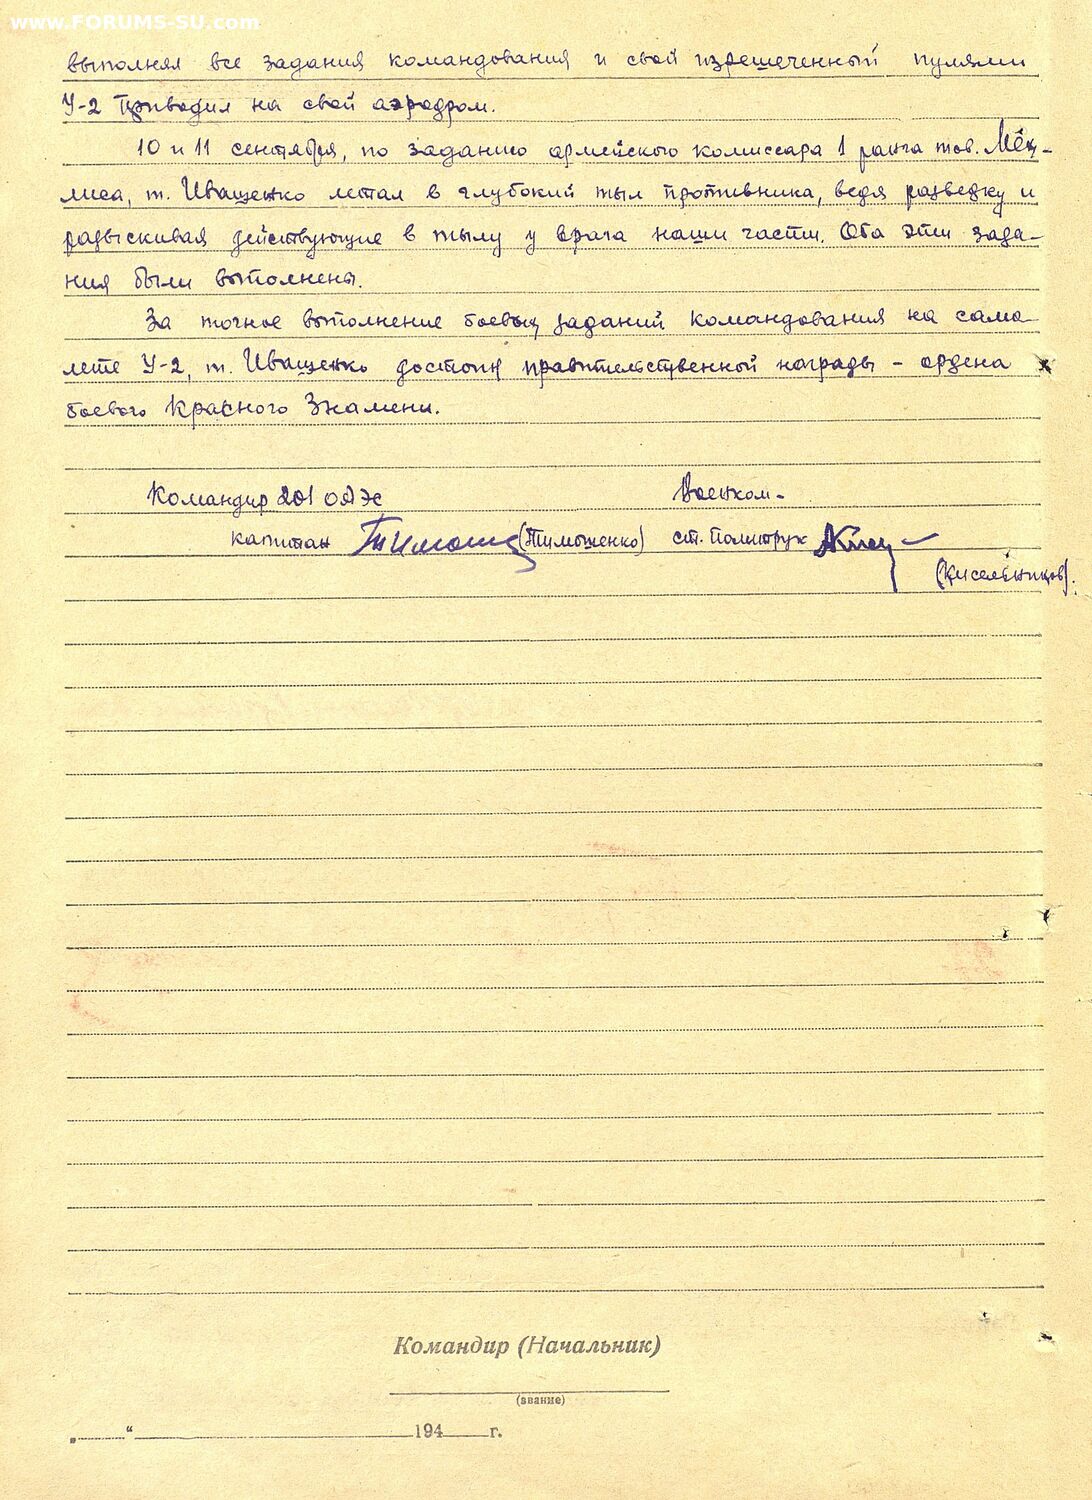 www.FORUMS-SU.com
выполнял все задания командования и свой изрешеченный пулями
У-2 приводил на свой аэродром.
10 и 11 сентября, по заданию армейского комиссара 1 ранга тов. Мех-
лиса, т. Иващенко летал в глубокий тыл противника, ведя разведку и
разыскивая действующие в тылу у врага наши части. Оба эти зада-
ния были выполнены.
За точное выполнение боевых заданий командования на само-
лете У-2, т. Иващенко достоин правительственной награды – ордена
боевого Красного Знамени.
Командир 201 Военком-
капитан (Тимошенко) ст. политрук
(Кисельников).
Командир (Начальник)
(звание)
„ “ 194 г.